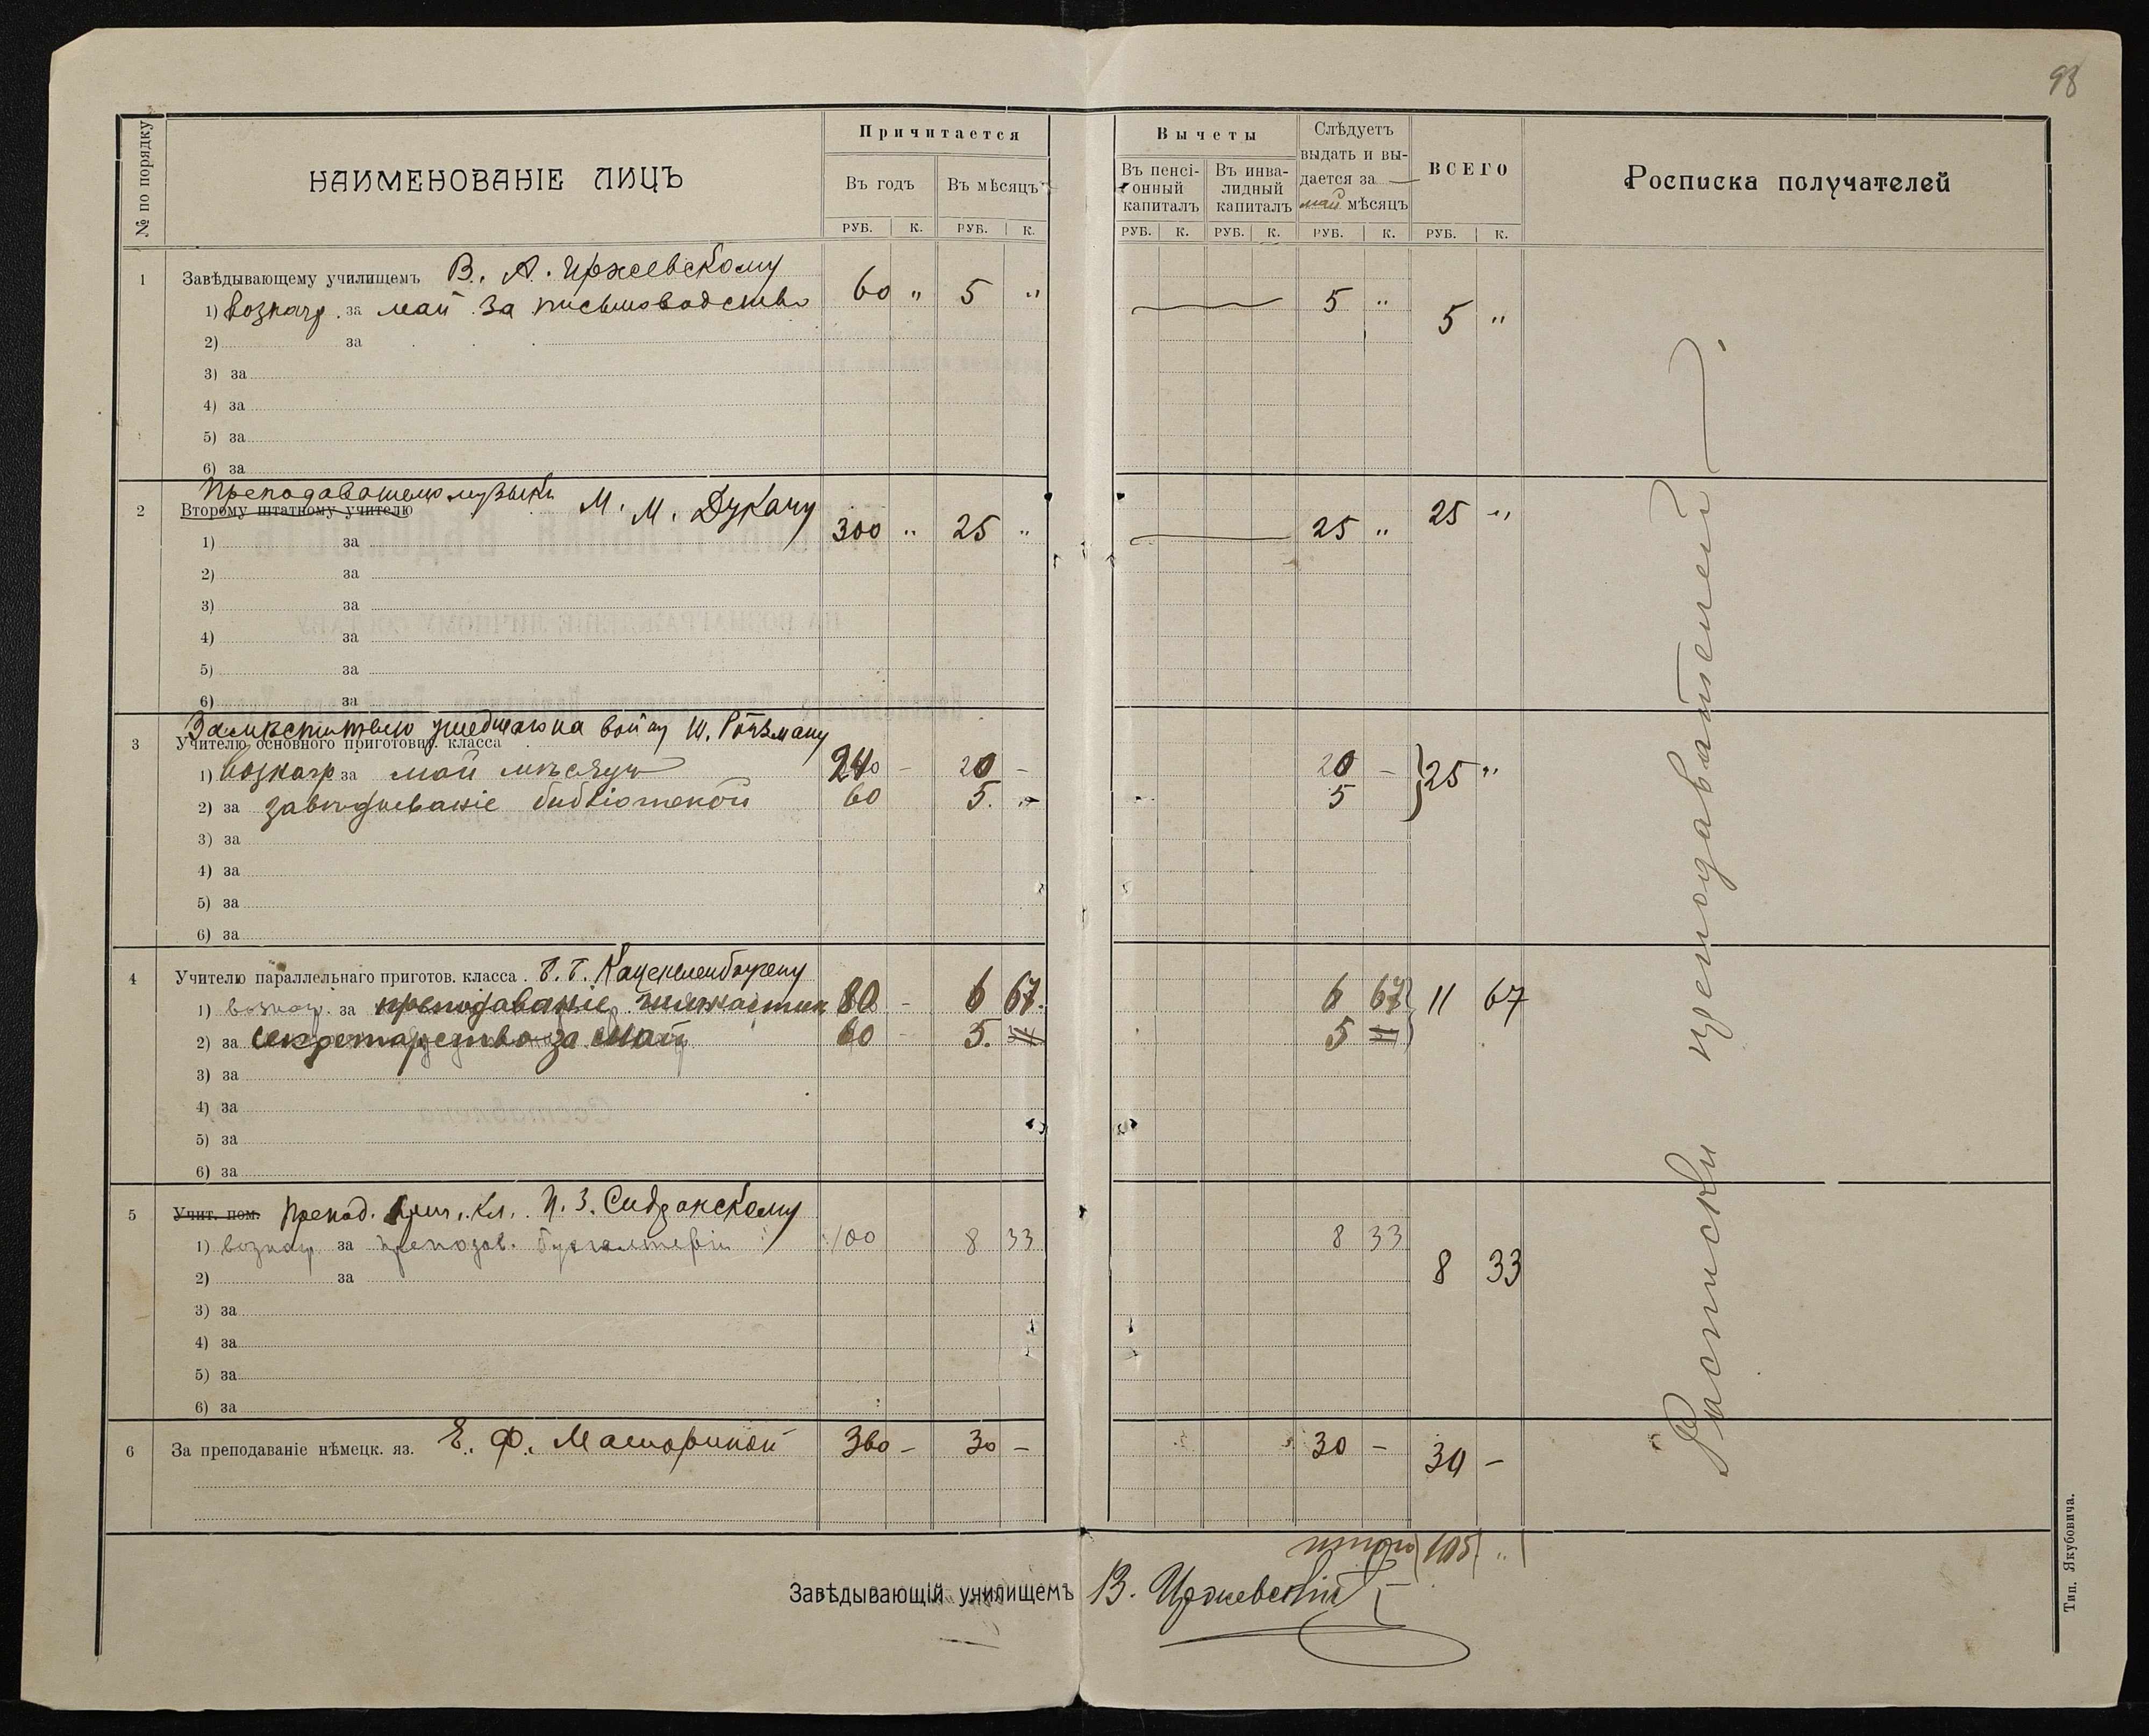 98
№ по порядку
НАИМЕНОВАНІЕ ЛИЦЪ
Причитается
Въ годъ
Въ мѣсяцъ
РУБ. К. РУБ. К.
Вычеты
Въ пенсі-
онный
капиталъ
Въ инва-
лидный
капиталъ
Слѣдуетъ
выдать и вы-
дается за
май мѣсяцъ
ВСЕГО
Росписка получателей
РУБ. К. РУБ. К. РУБ. К. РУБ. К.
1 Завѣдывающему училищемъ В. А. Иржевскому
1) вознагр. за май за письмоводство 60 " 5 " 5 " 5 "
2) за
3) за
4) за
5) за
6) за
Преподавателю музыки М. М. Дукачу
2 Второму штатному учителю
1) за 300 " 25 " 25 " 25 "
2) за
3) за
4) за
5) за
6) за
Замѣстителю ушедшаго на войну
3 Учителю основного приготовит. класса
1) вознагр за май мѣсяцъ 240 - 20 - 20 - 25 "
2) за завѣдываніе библіотекой 60 5. - 5
3) за
4) за
5) за
6) за
4 Учителю параллельнаго приготов. класса
1) вознагр. за преподаваніе гимнастики 80 - 6 67. 6 67 11 67
2) за секретарство за май 60 - 5. 5
3) за
4) за
5) за
6) за
5 Учит. пом. Препод. приг. кл. И. З. Сидранскому
1) вознагр. за преподав. бухгалтеріи 100 8 33 8 33 8 33
2) за
3) за
4) за
5) за
6) за
6 За преподаваніе нѣмецк. яз. Е. Ф. Маториной 360 - 30 - 30 - 30 -
итого 105 "
Завѣдывающій училищемъ В. Иржевскій
Расписки преподавателей
Тип. Якубовича.